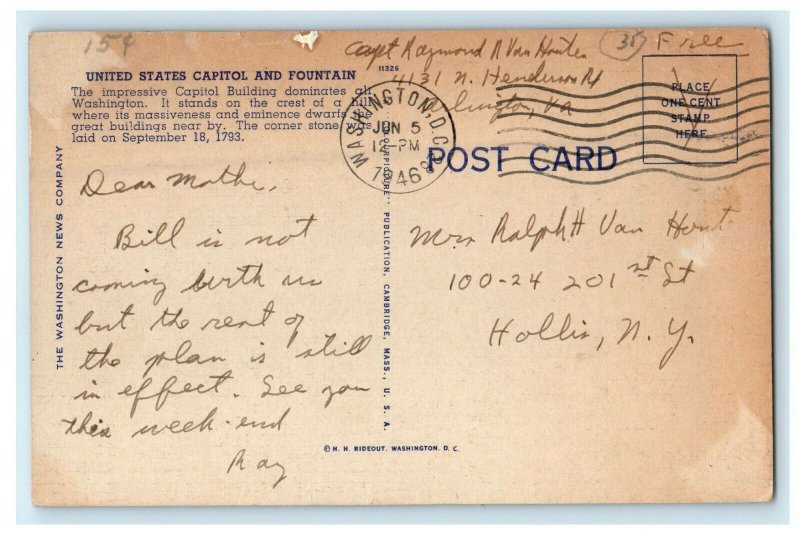 15¢
Capt Raymond R Van Houten
35
Free
11326
4131 N. Henderson Rd
Arlington, VA
UNITED STATES CAPITOL AND FOUNTAIN
The impressive Capitol Building dominates all
Washington. It stands on the crest of a hill
where its massiveness and eminence dwarfs
great buildings near by. The corner stone was
laid on September 18, 1793.
WASHINGTON, D.C.
JUN 5
12-PM
1946
PLACE
ONE CENT
STAMP
HERE
POST CARD
THE WASHINGTON NEWS COMPANY
PUBLICATION, CAMBRIDGE, MASS., U. S. A.
Dear Mother,
Bill is not
coming with us
but the rest of
the plan is still
in effect. See you
this week-end
Ray
Mrs Ralph H Van Hout
100-24 201st St
Hollis, N.Y.
© H. H. RIDEOUT, WASHINGTON, D. C.